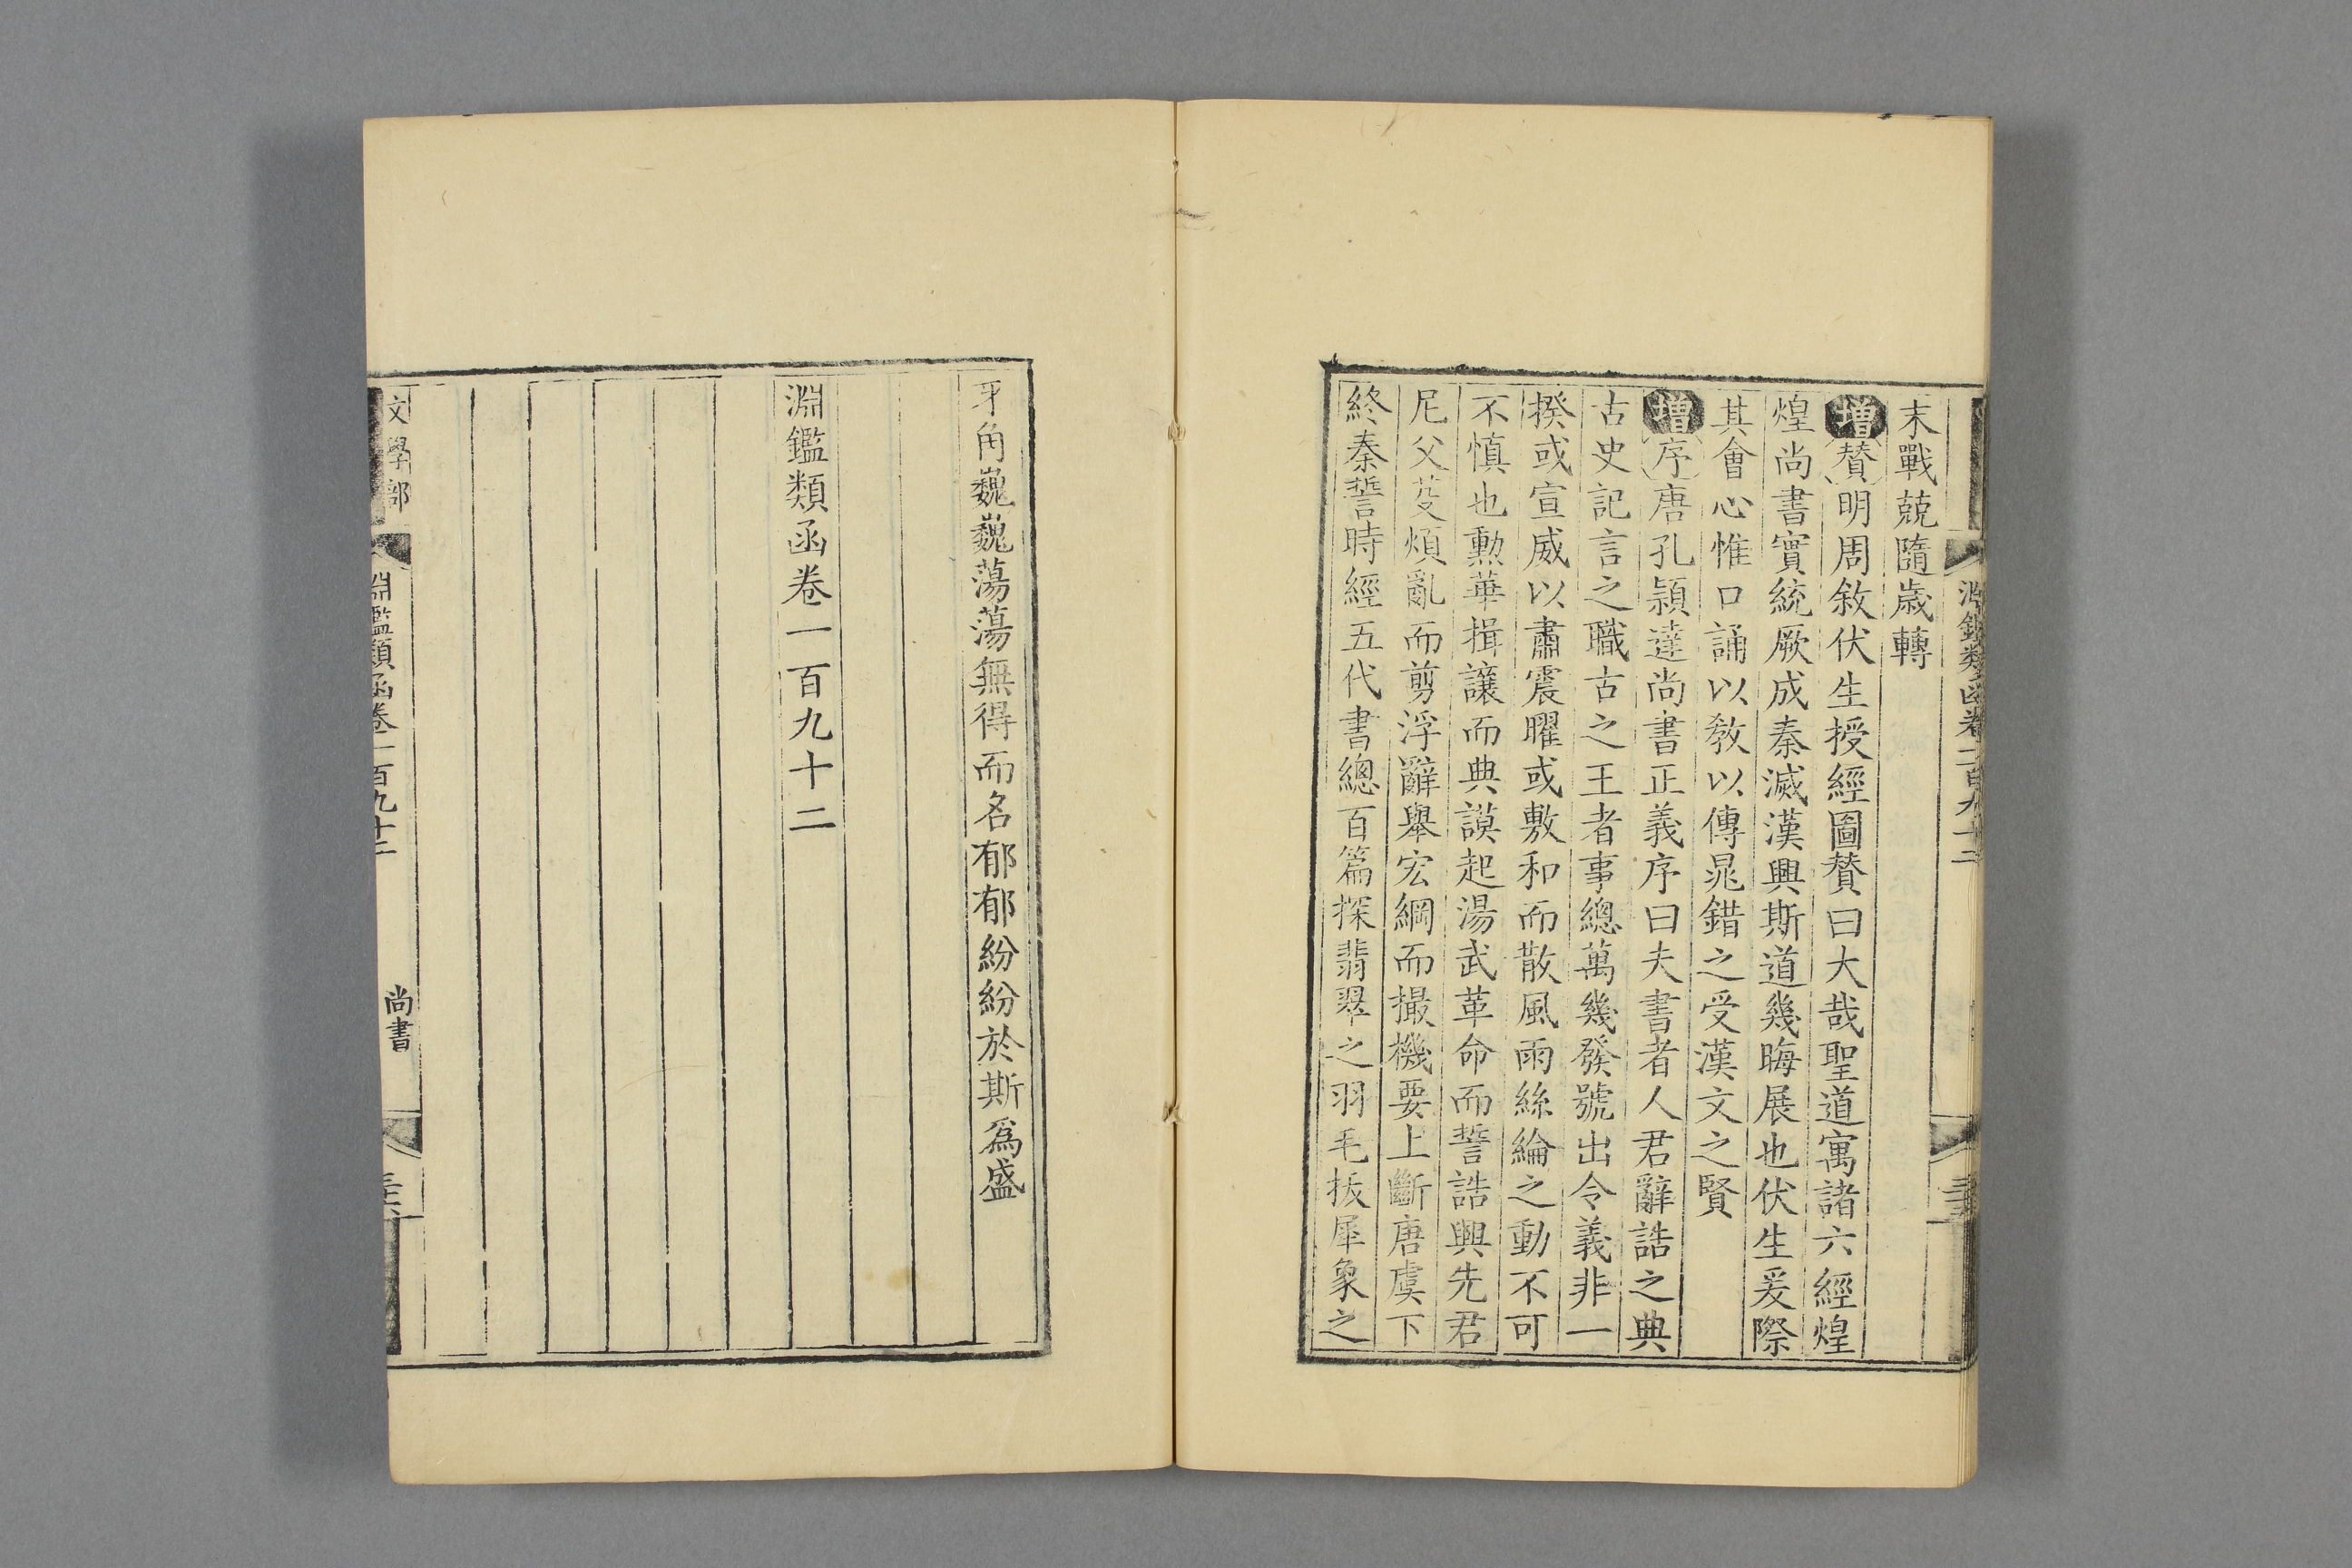 末戰兢隨歲轉
增贊明周敘伏生授經圖贊曰大哉聖道寓諸六經煌
煌尚書實統厥成秦滅漢興斯道幾晦展也伏生爰際
其會心惟口誦以教以傳晁錯之受漢文之賢
增序唐孔穎達尚書正義序曰夫書者人君辭誥之典
古史記言之職古之王者事總萬幾發號出令義非一
揆或宣威以肅震曜或敷和而散風雨絲綸之動不可
不慎也勲華揖讓而典謨起湯武革命而誓誥興先君
尼父芟煩亂而剪浮辭舉宏綱而撮機要上斷唐虞下
終秦誓時經五代書總百篇探翡翠之羽毛拔犀象之
牙角巍巍蕩蕩無得而名郁郁紛紛於斯爲盛
淵鑑類函卷一百九十二
文學部
淵鑑類函卷一百九十二
尚書